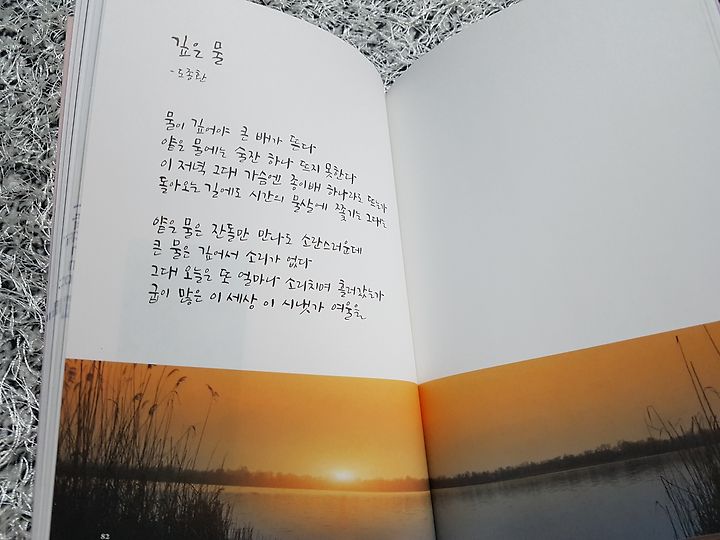 깊은 물
-도종환
물이 깊어야 큰 배가 뜬다
얕은 물에는 술잔 하나 뜨지 못한다
이 저녁 그대 가슴엔 종이배 하나라도 뜨는가
돌아오는 길에도 시간의 물살에 쫓기는 그대는
얕은 물은 잔돌만 만나도 소란스러운데
큰 물은 깊어서 소리가 없다
그대 오늘은 또 얼마나 소리치며 흘러갔는가
굽이 많은 이 세상 이 시냇가 여울을
82